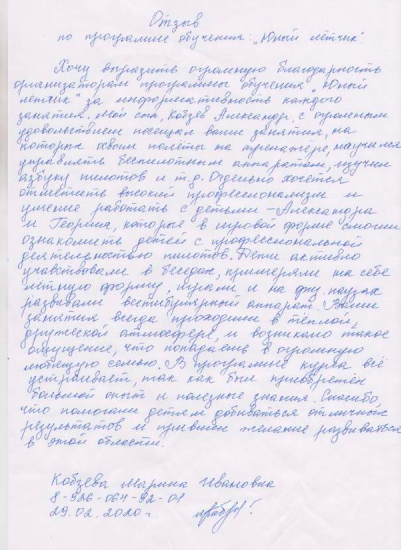 Отзыв
по программе обучения: "Юный лётчик"
Хочу выразить огромную благодарность
организаторам программы обучения "Юный
лётчик" за информативность каждого
занятия. Мой сын, Кобзев Александр, с огромным
удовольствием посещал ваши занятия, на
которых освоил полёты на тренажере, научился
управлять беспилотным аппаратом, изучил
азбуку пилотов и т.д. Отдельно хочется
отметить высокий профессионализм и
умение работать с детьми - Александра
и Георгия, которые в игровой форме смогли
ознакомить детей с профессиональной
деятельностью пилотов. Дети активно
участвовали в беседах, примеряли на себе
лётную форму, играли и на физ. паузах
развивали вестибулярный аппарат. Ваши
занятия всегда проходили в тёплой,
дружеской атмосфере, и возникало такое
ощущение, что попадаешь в огромную
любящую семью. В программе курса всё
устраивает, так как был приобретён
большой опыт и полезные знания. Спасибо,
что помогаете детям добиваться отличных
результатов и привили желание развиваться
в этой области.
Кобзева Марина Ивановна
8-926-064-92-01
29.02.2020 г.